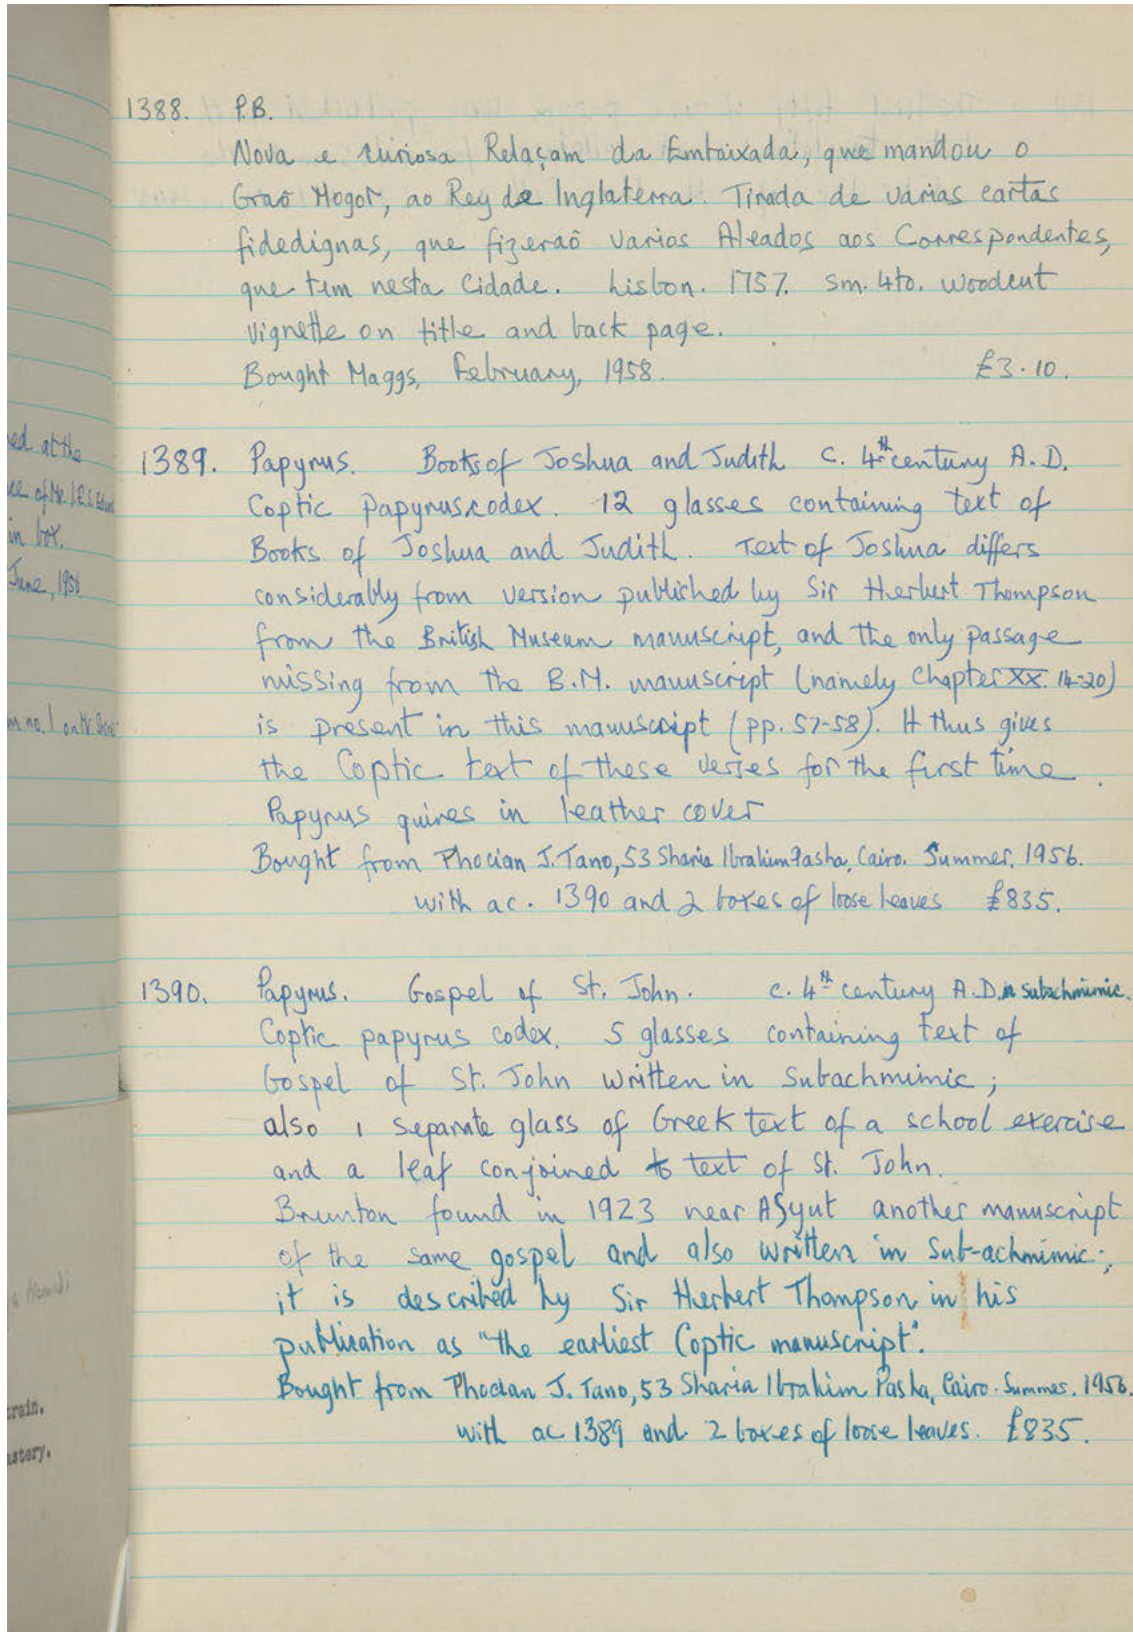 1388. P.B.
Nova e curiosa Relaçam da Embaixada, que mandou o
Graõ Mogor, ao Rey de Inglaterra. Tirada de varias cartas
fidedignas, que fizeraõ varios Aleados aos Correspondentes,
que tem nesta Cidade. Lisbon. 1757. sm. 4to. woodcut
vignette on title and back page.
Bought Maggs, February, 1958. £3.10.
1389. Papyrus. Books of Joshua and Judith c. 4th century A.D.
Coptic papyrus codex. 12 glasses containing text of
Books of Joshua and Judith. Text of Joshua differs
considerably from version published by Sir Herbert Thompson
from the British Museum manuscript, and the only passage
missing from the B.M. manuscript (namely Chapter XX. 14-20)
is present in this manuscript (pp. 57-58). It thus gives
the Coptic text of these verses for the first time.
Papyrus quires in leather cover
Bought from Phocian J. Tano, 53 Sharia Ibrahim Pasha, Cairo. Summer, 1956.
with ac. 1390 and 2 boxes of loose leaves £835.
1390. Papyrus. Gospel of St. John. c. 4th century A.D. in subachmimic.
Coptic papyrus codex. 5 glasses containing text of
Gospel of St. John written in Subachmimic;
also 1 separate glass of Greek text of a school exercise
and a leaf conjoined to text of St. John.
Brunton found in 1923 near Asyut another manuscript
of the same gospel and also written in Sub-achmimic;
it is described by Sir Herbert Thompson in his
publication as "the earliest Coptic manuscript".
Bought from Phocian J. Tano, 53 Sharia Ibrahim Pasha, Cairo. Summer. 1956.
with ac 1389 and 2 boxes of loose leaves. £835.
ed at the
ce of Mr. I.E.S.
in box.
June, 1956
m no. 1 on Mr.
train.
astery.